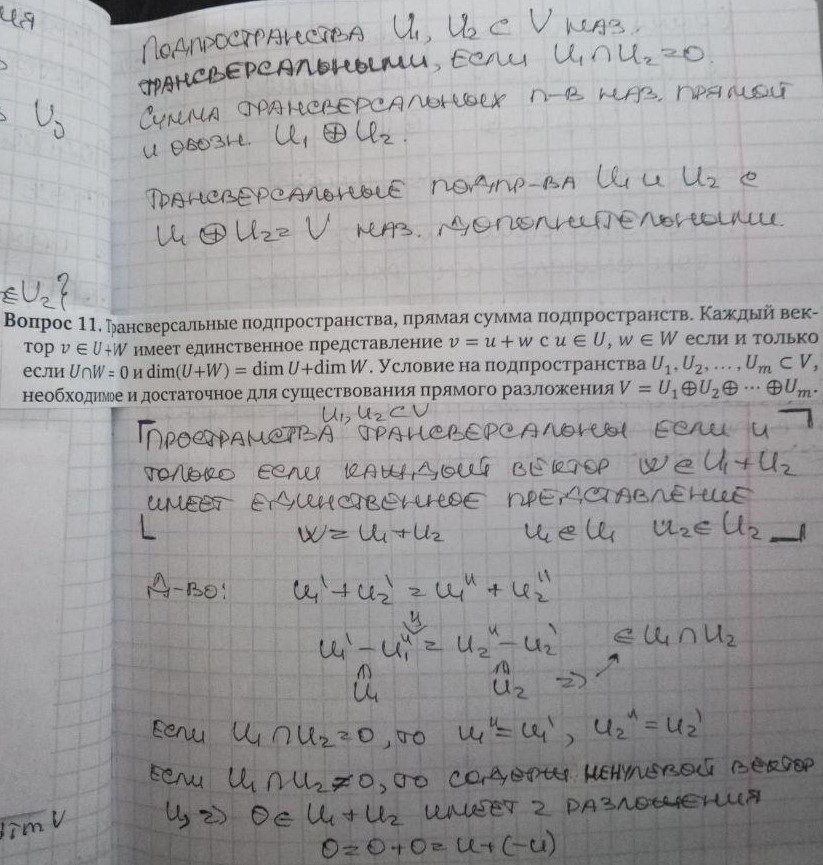 ия
Подпространства U₁, U₂ ⊂ V наз.
трансверсальными, если U₁∩U₂=0.
Сумма трансверсальных п-в наз. прямой
и обозн. U₁ ⊕ U₂.
Трансверсальные подпр-ва U₁ и U₂ с
U₁ ⊕ U₂ = V наз. дополнительными.
∈U₂}
Вопрос 11. Трансверсальные подпространства, прямая сумма подпространств. Каждый век-
тор v ∈ U+W имеет единственное представление v = u + w с u ∈ U, w ∈ W если и только
если U∩W = 0 и dim(U+W) = dim U+dim W. Условие на подпространства U₁, U₂, …, Uₘ ⊂ V,
необходимое и достаточное для существования прямого разложения V = U₁⊕U₂⊕ ⋯ ⊕Uₘ.
U₁, U₂ ⊂ V
Пространства трансверсальны если и
только если каждый вектор w ∈ U₁+U₂
имеет единственное представление
w = u₁+u₂ u₁ ∈ U₁ u₂ ∈ U₂
Д-во: u₁' + u₂' = u₁'' + u₂''
u₁' - u₁'' = u₂'' - u₂' ∈ U₁∩U₂
U₁ U₂ ⇒
Если U₁∩U₂=0, то u₁''=u₁', u₂''=u₂'
Если U₁∩U₂≠0, то содерж. ненулевой вектор
u, ⇒ 0 ∈ U₁+U₂ имеет 2 разложения
0=0+0=u+(-u)
im V